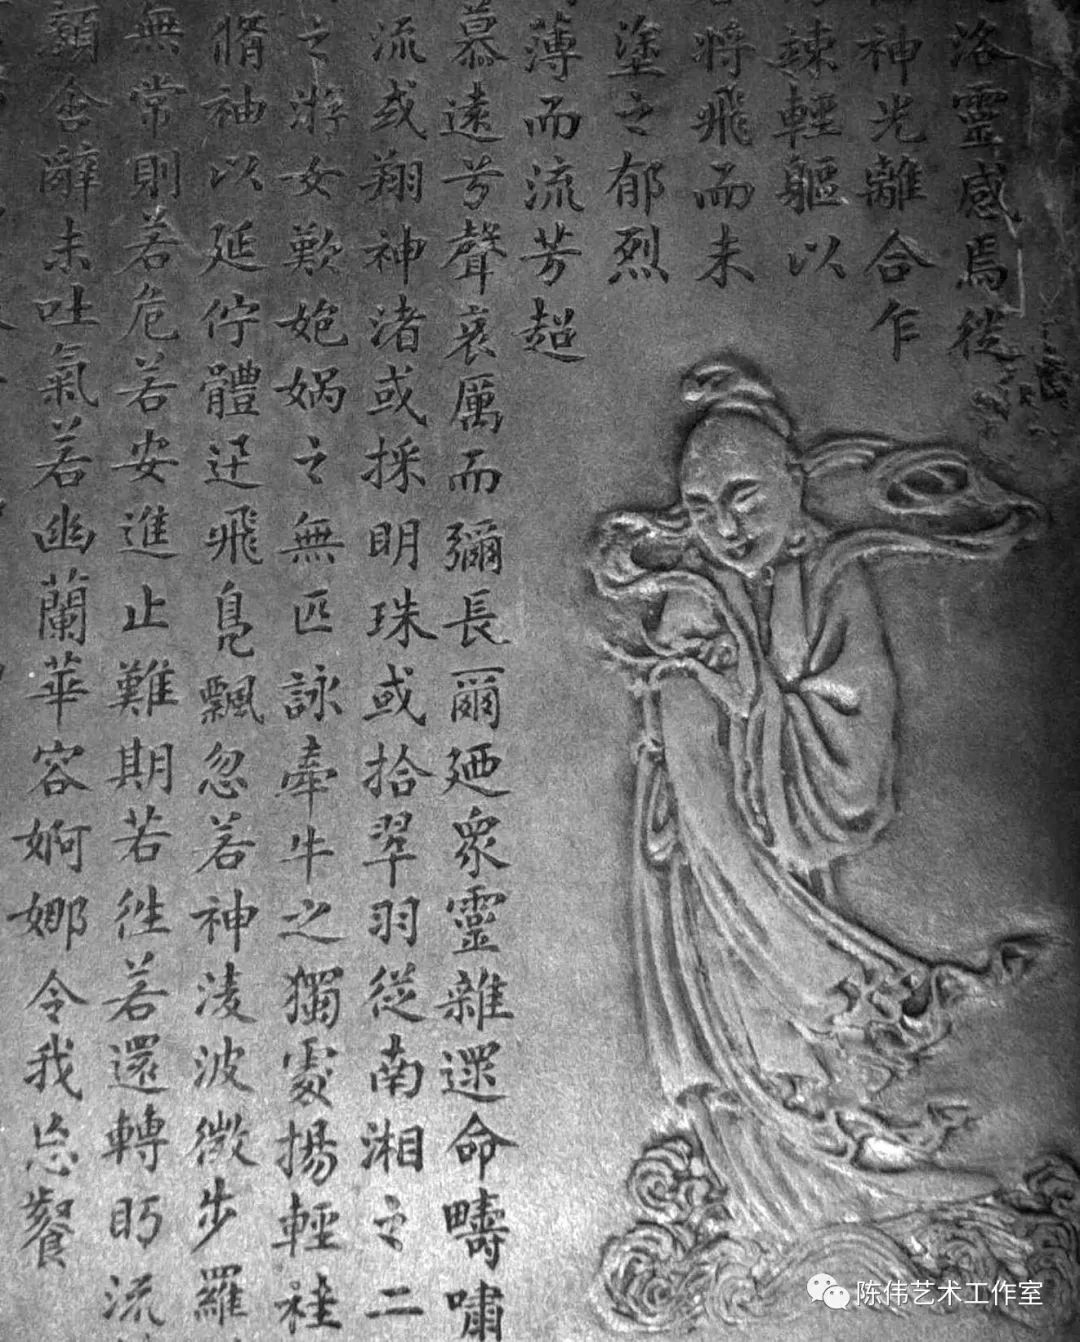 洛靈感焉徙
神光離合乍
竦輕軀以
將飛而未
塗之郁烈
薄而流芳超
慕遠兮聲哀厲而彌長爾廼眾靈雜遝命疇嘯
流或翔神渚或採明珠或拾翠羽從南湘之二
之游女歎匏媧之無匹詠牽牛之獨處揚輕袿
脩袖以延佇體迅飛鳧飄忽若神凌波微步羅
無常則若危若安進止難期若往若還轉眄流
顏含辭未吐氣若幽蘭華容婀娜令我忘餐
陈伟艺术工作室